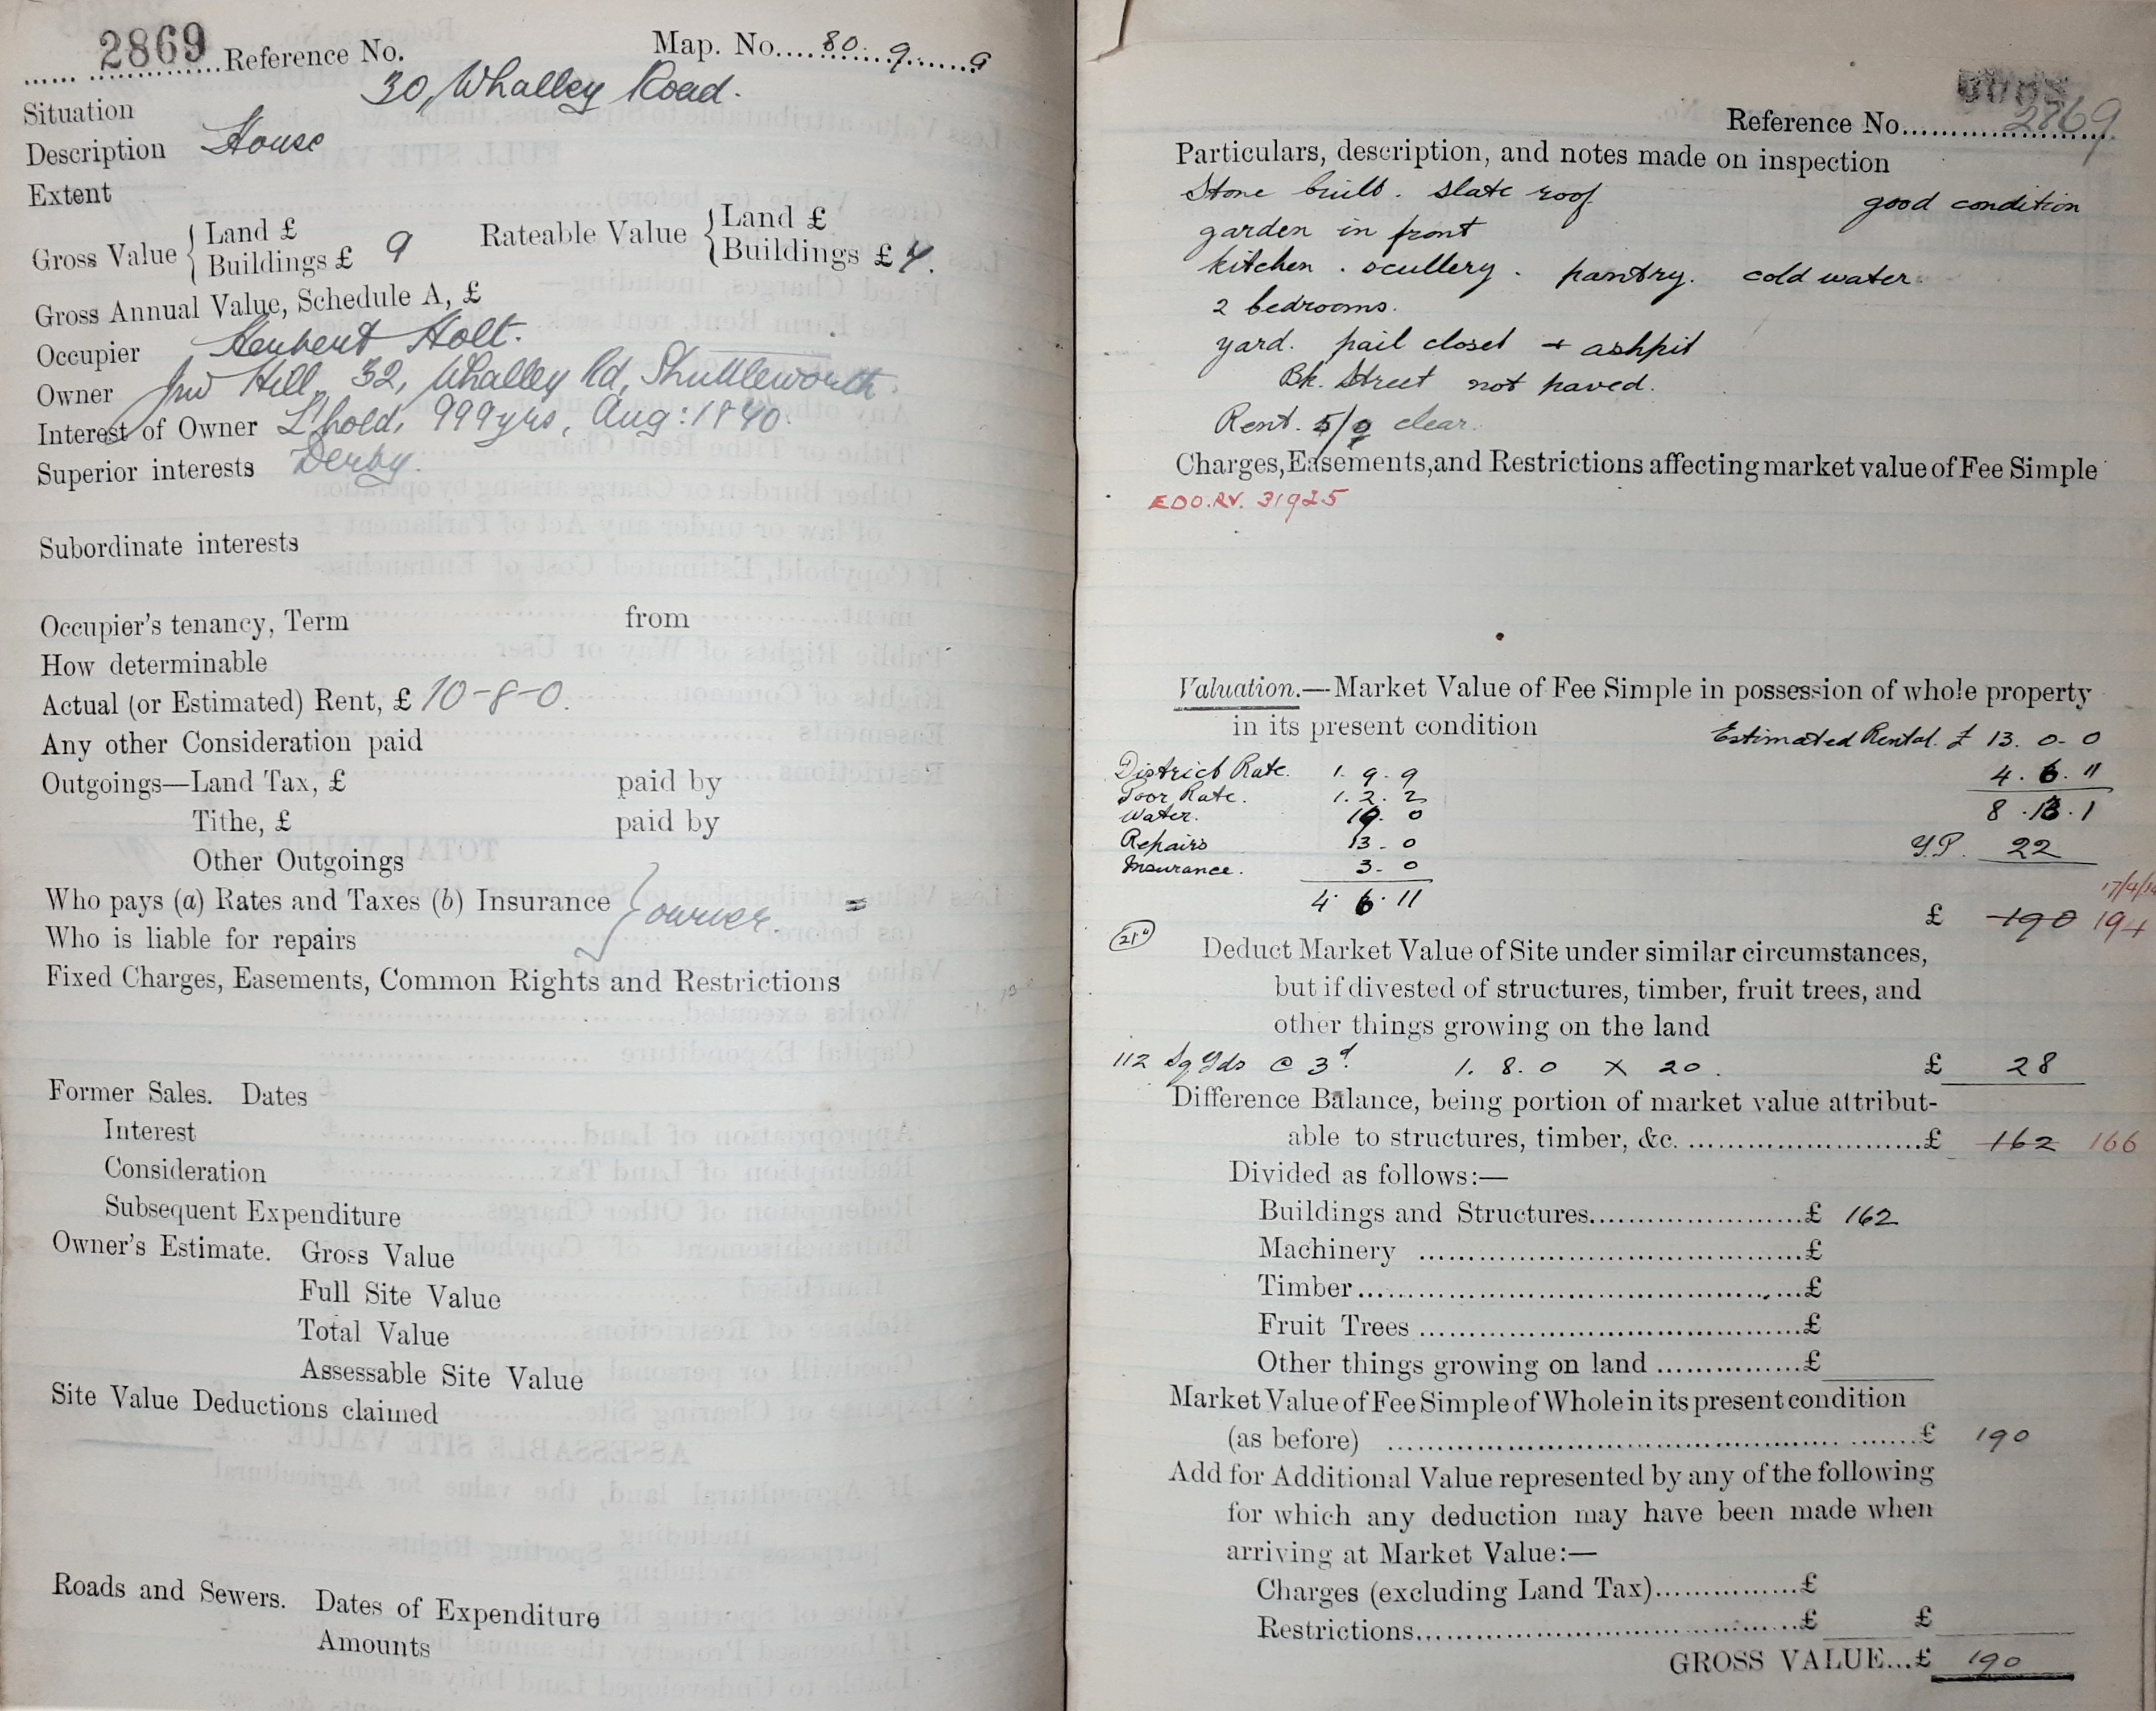 2869 Reference No. Map. No. 80. 9. 9
Situation 30, Whalley Road.
Description House
Extent
Gross Value { Land £
Buildings £ 9
Rateable Value { Land £
Buildings £
Gross Annual Value, Schedule A, £
Occupier Herbert Holt.
Owner Jno Hill, 32, Whalley Rd, Shuttleworth.
Interest of Owner L'hold, 999 yrs, Aug: 1840.
Superior interests Derby.
Subordinate interests
Occupier's tenancy, Term from
How determinable
Actual (or Estimated) Rent, £ 10-8-0.
Any other Consideration paid
Outgoings—Land Tax, £ paid by
Tithe, £ paid by
Other Outgoings
Who pays (a) Rates and Taxes (b) Insurance } owner. =
Who is liable for repairs
Fixed Charges, Easements, Common Rights and Restrictions
Former Sales. Dates
Interest
Consideration
Subsequent Expenditure
Owner's Estimate. Gross Value
Full Site Value
Total Value
Assessable Site Value
Site Value Deductions claimed
Roads and Sewers. Dates of Expenditure
Amounts
Reference No. 2869
Particulars, description, and notes made on inspection
Stone built. slate roof good condition
garden in front
kitchen. scullery. pantry. cold water.
2 bedrooms.
yard. pail closet + ashpit
Bk. Street not paved.
Rent. 5/ clear.
Charges, Easements, and Restrictions affecting market value of Fee Simple
EDO.RV. 31925
Valuation.—Market Value of Fee Simple in possession of whole property
in its present condition
Estimated Rental. £ 13. 0- 0
District Rate. 1. 9. 9 4. 6. 11
Poor Rate. 1. 2. 2 8. 13. 1
Water. 0
Repairs 13- 0 Y.P. 22
Insurance. 3- 0
4. 6. 11
17/4/14
£ 190 194
21"
Deduct Market Value of Site under similar circumstances,
but if divested of structures, timber, fruit trees, and
other things growing on the land
112 Sq Yds @ 3d. 1. 8. 0 x 20. £ 28
Difference Balance, being portion of market value attribut-
able to structures, timber, &c. £ 162 166
Divided as follows:—
Buildings and Structures £ 162
Machinery £
Timber £
Fruit Trees £
Other things growing on land £
Market Value of Fee Simple of Whole in its present condition
(as before) £ 190
Add for Additional Value represented by any of the following
for which any deduction may have been made when
arriving at Market Value:—
Charges (excluding Land Tax) £
Restrictions £ £
GROSS VALUE...£ 190